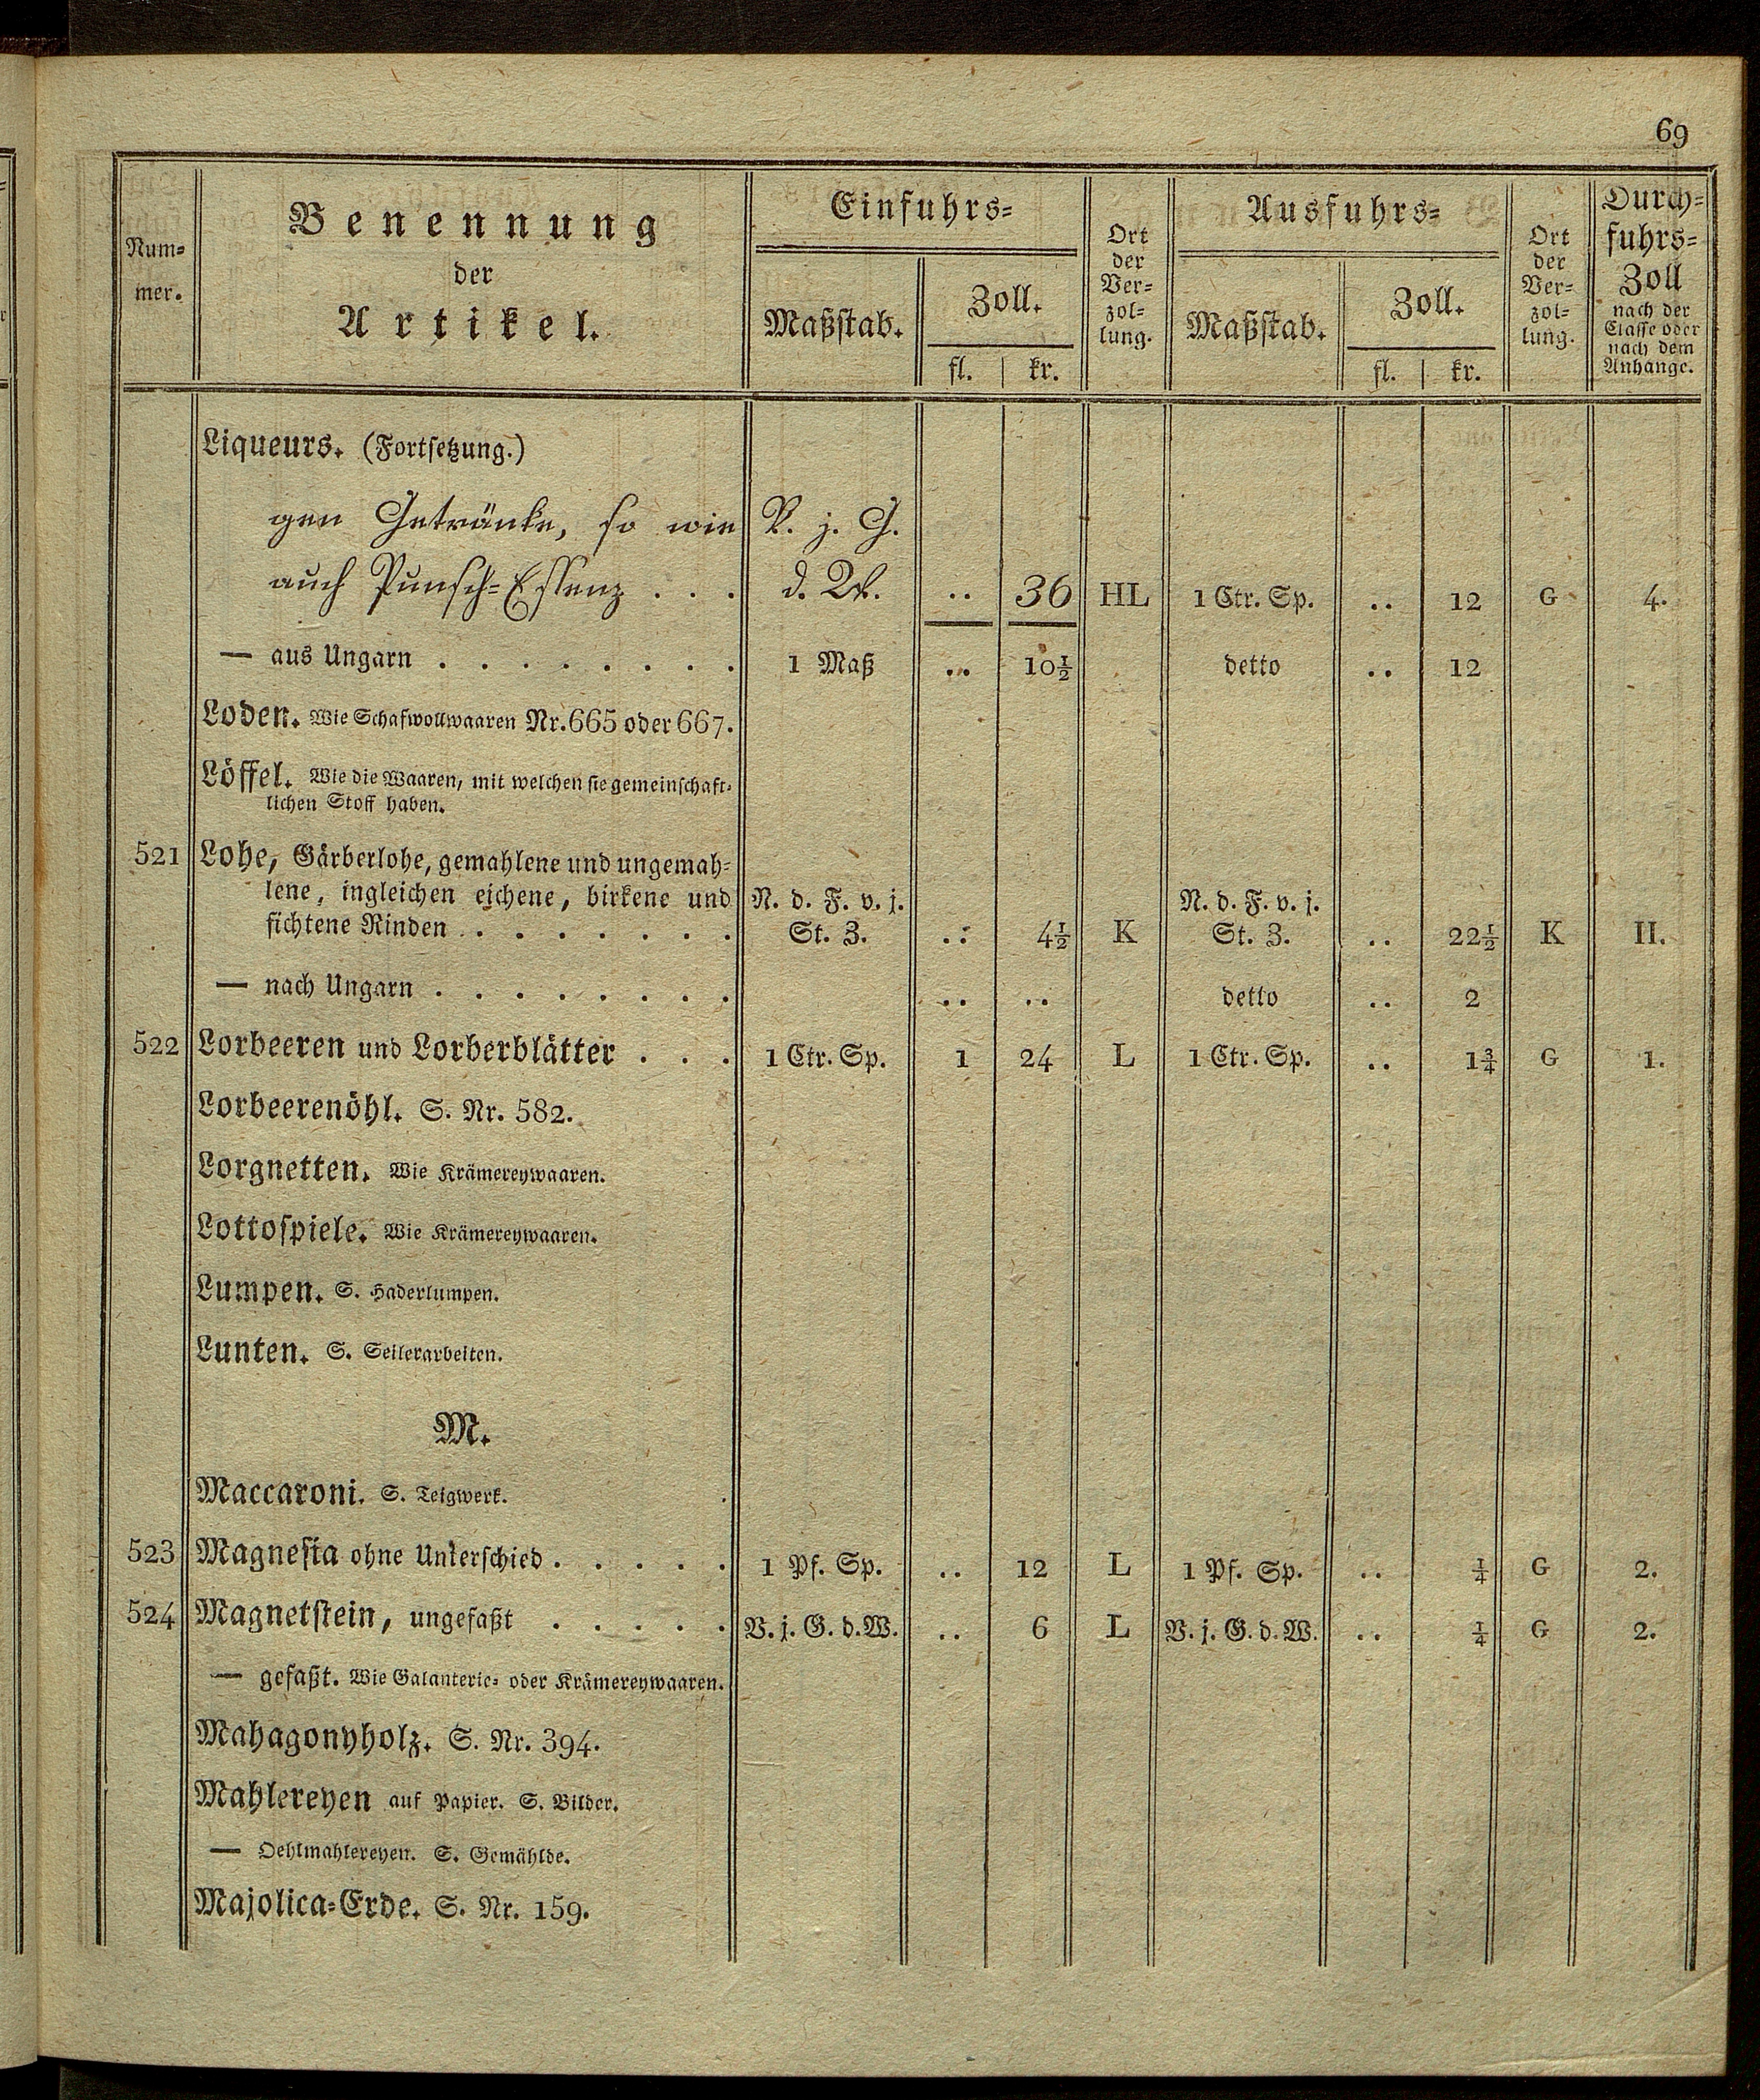 69
Num-
mer.
Benennung
der
Artikel.
Einfuhrs-
Maßstab.
Zoll.
fl. | kr.
Ort
der
Ver-
zol-
lung.
Ausfuhrs-
Maßstab.
Zoll.
fl. | kr.
Ort
der
Ver-
zol-
lung.
Durch-
fuhrs-
Zoll
nach der
Classe oder
nach dem
Anhange.
Liqueurs. (Fortsetzung.)
gen Getränke, so wie V. j. G.
auch Punsch-Essenz . . . d. W. .. 36 HL 1 Ctr. Sp. .. 12 G 4.
— aus Ungarn . . . . . . . . 1 Maß .. 10½ detto .. 12
Loden. Wie Schafwollwaaren Nr. 665 oder 667.
Löffel. Wie die Waaren, mit welchen sie gemeinschaft-
lichen Stoff haben.
521 Lohe, Gärberlohe, gemahlene und ungemah-
lene, ingleichen eichene, birkene und N. d. F. v. j. N. d. F. v. j.
fichtene Rinden . . . . . . . St. Z. .. 4½ K St. Z. .. 22½ K II.
— nach Ungarn . . . . . . . . .. .. detto .. 2
522 Lorbeeren und Lorberblätter . . . 1 Ctr. Sp. 1 24 L 1 Ctr. Sp. .. 1¾ G 1.
Lorbeerenöhl. S. Nr. 582.
Lorgnetten. Wie Krämereywaaren.
Lottospiele. Wie Krämereywaaren.
Lumpen. S. Haderlumpen.
Lunten. S. Seilerarbeiten.
M.
Maccaroni. S. Teigwerk.
523 Magnesia ohne Unterschied . . . . . 1 Pf. Sp. .. 12 L 1 Pf. Sp. .. ¼ G 2.
524 Magnetstein, ungefaßt . . . . . V. j. G. d. W. .. 6 L V. j. G. d. W. .. ¼ G 2.
— gefaßt. Wie Galanterie- oder Krämereywaaren.
Mahagonyholz. S. Nr. 394.
Mahlereyen auf Papier. S. Bilder.
— Oehlmahlereyen. S. Gemählde.
Majolica-Erde. S. Nr. 159.